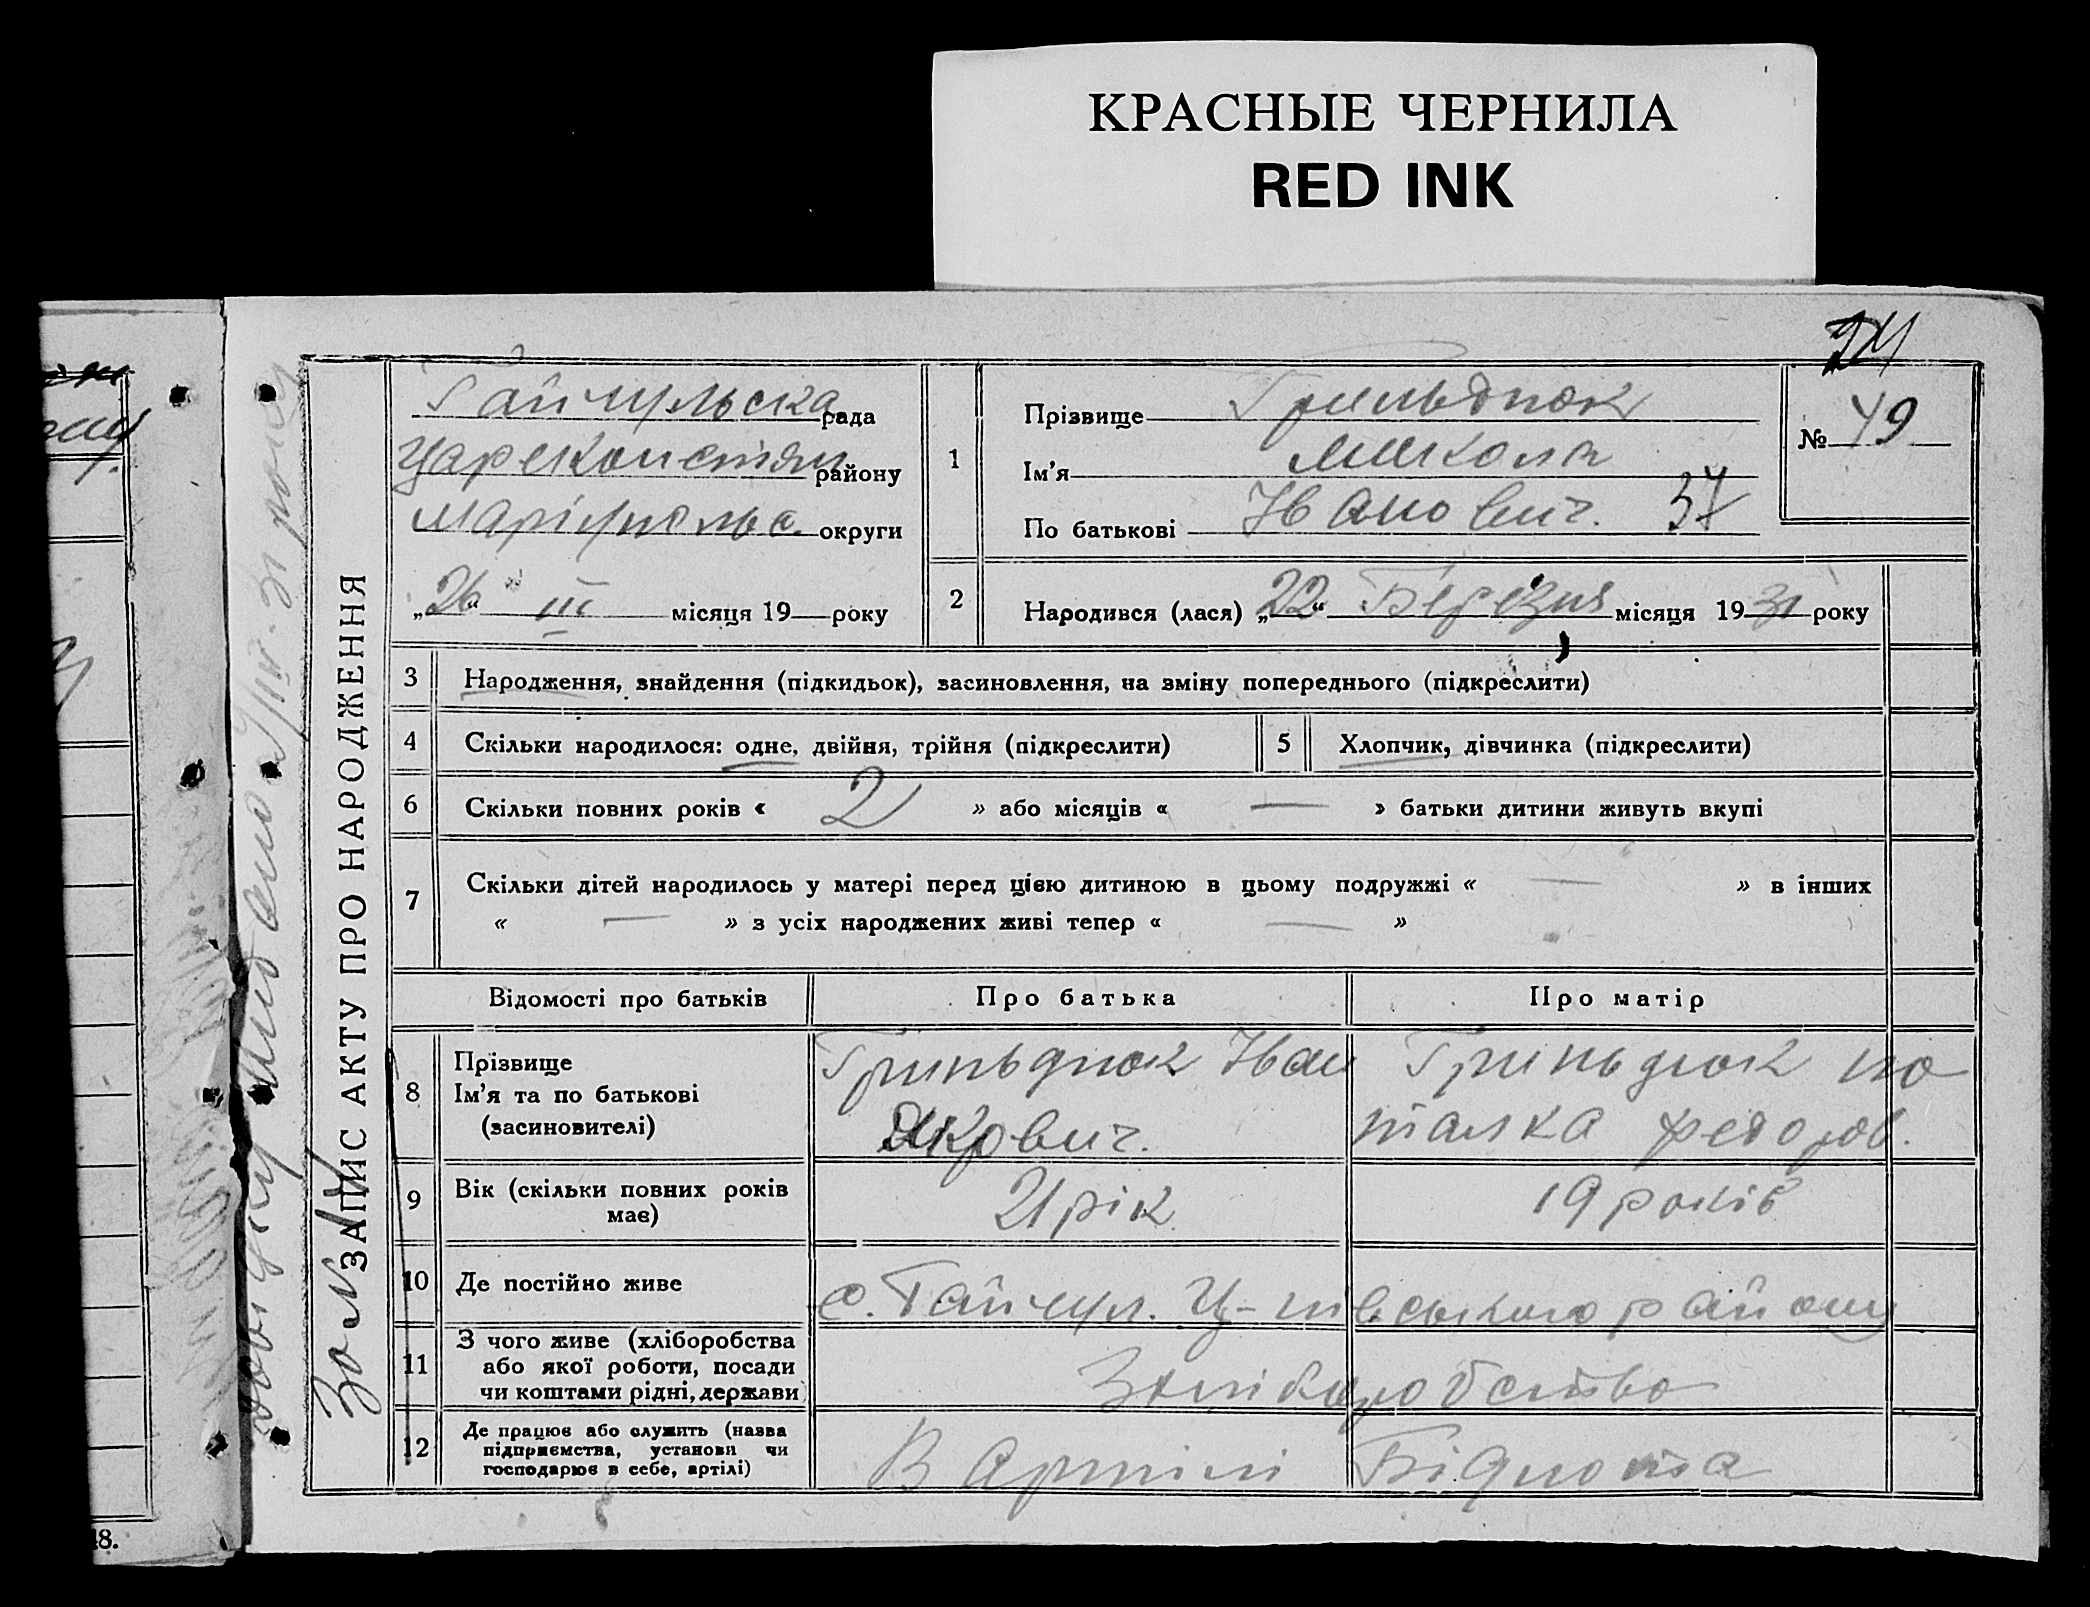 КРАСНЫЕ ЧЕРНИЛА
RED INK
24
ЗАПИС АКТУ ПРО НАРОДЖЕННЯ
Гайчульска рада
Цареконстян району
Маріупольс. округи
„26“ III місяця 19 року
1
Прізвище Гриньдюк
Ім'я Микола
По батькові Іванович. 37
№ 49
2
Народився (лася) „22“ Березня місяця 1931 року
3 Народження, знайдення (підкидьок), засиновлення, на зміну попереднього (підкреслити)
4 Скільки народилося: одне, двійня, трійня (підкреслити)
5 Хлопчик, дівчинка (підкреслити)
6 Скільки повних років « 2 » або місяців « — » батьки дитини живуть вкупі
7 Скільки дітей народилось у матері перед цією дитиною в цьому подружжі « — » в інших
« — » з усіх народжених живі тепер « — »
Відомості про батьків Про батька Про матір
8 Прізвище
Ім'я та по батькові
(засиновителі)
Гриньдюк Іван
Якович.
Гриньдюк На
талка Федоров.
9 Вік (скільки повних років
має)
21 рік
19 років
10 Де постійно живе
с. Гайчул. Ц- району
11 З чого живе (хліборобства
або якої роботи, посади
чи коштами рідні, держави
Хліборобство
12 Де працює або служить (назва
підприємства, установи чи
господарює в себе, артілі)
В Артілі Біднота
48.